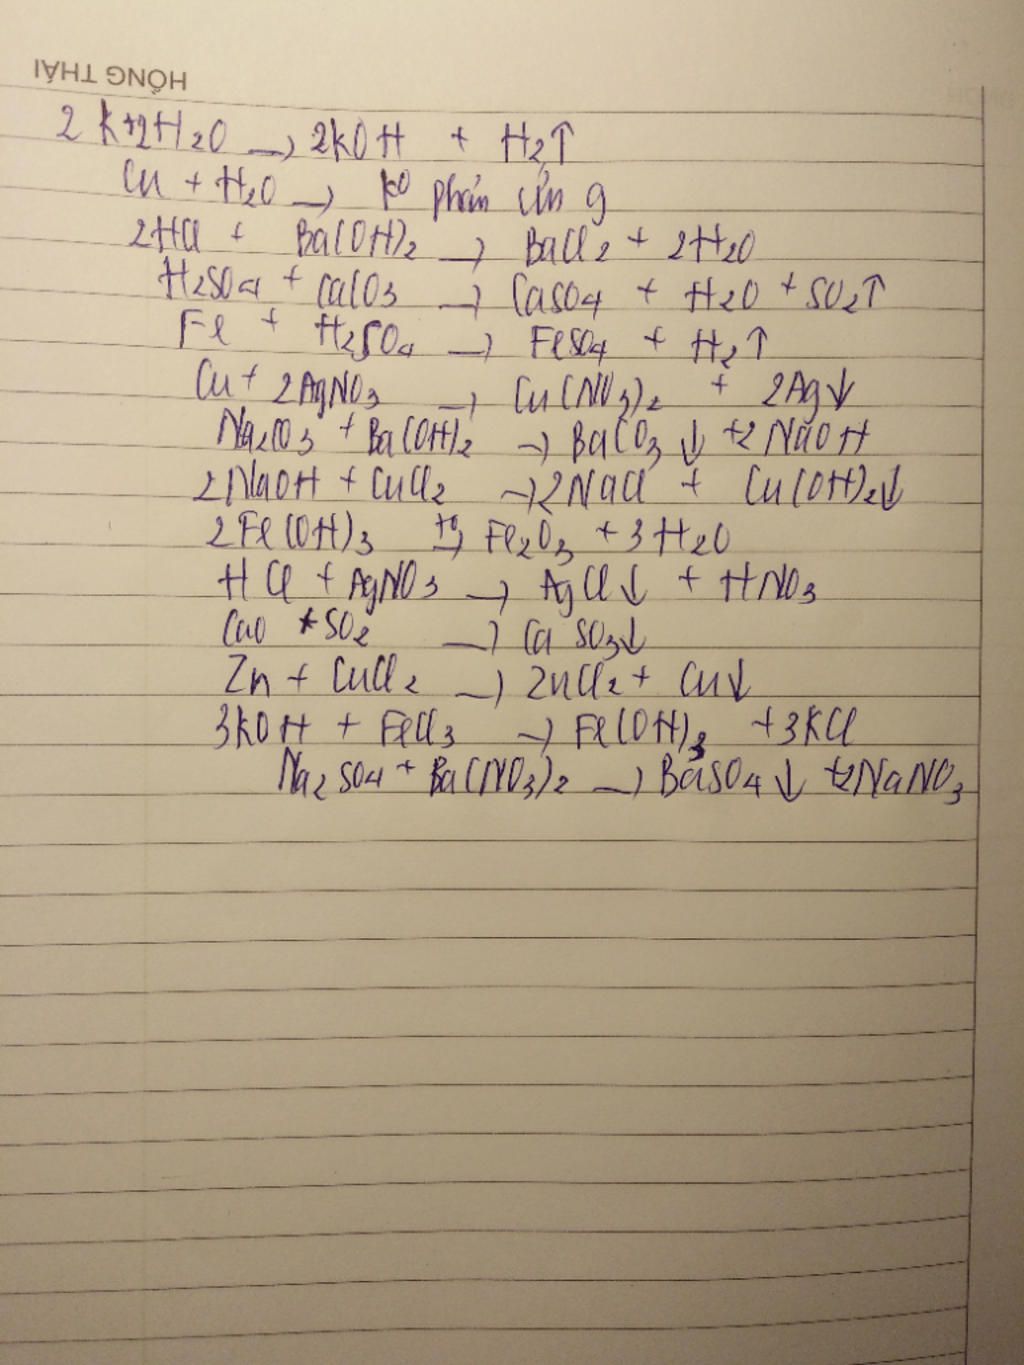 HỒNG THÁI
2 K+2H₂O → 2KOH + H₂↑
Cu + H₂O → ko phản ứng
2HCl + Ba(OH)₂ → BaCl₂ + 2H₂O
H₂SO₄ + CaCO₃ → CaSO₄ + H₂O + SO₂↑
Fe + H₂SO₄ → FeSO₄ + H₂↑
Cu + 2AgNO₃ → Cu(NO₃)₂ + 2Ag↓
Na₂CO₃ + Ba(OH)₂ → BaCO₃↓ +2NaOH
2NaOH + CuCl₂ → 2NaCl + Cu(OH)₂↓
2Fe(OH)₃ t⁰→ Fe₂O₃ + 3H₂O
HCl + AgNO₃ → AgCl↓ + HNO₃
CaO + SO₂ → CaSO₃↓
Zn + CuCl₂ → ZnCl₂ + Cu↓
3KOH + FeCl₃ → Fe(OH)₃ +3KCl
Na₂SO₄ + Ba(NO₃)₂ → BaSO₄↓ +2NaNO₃